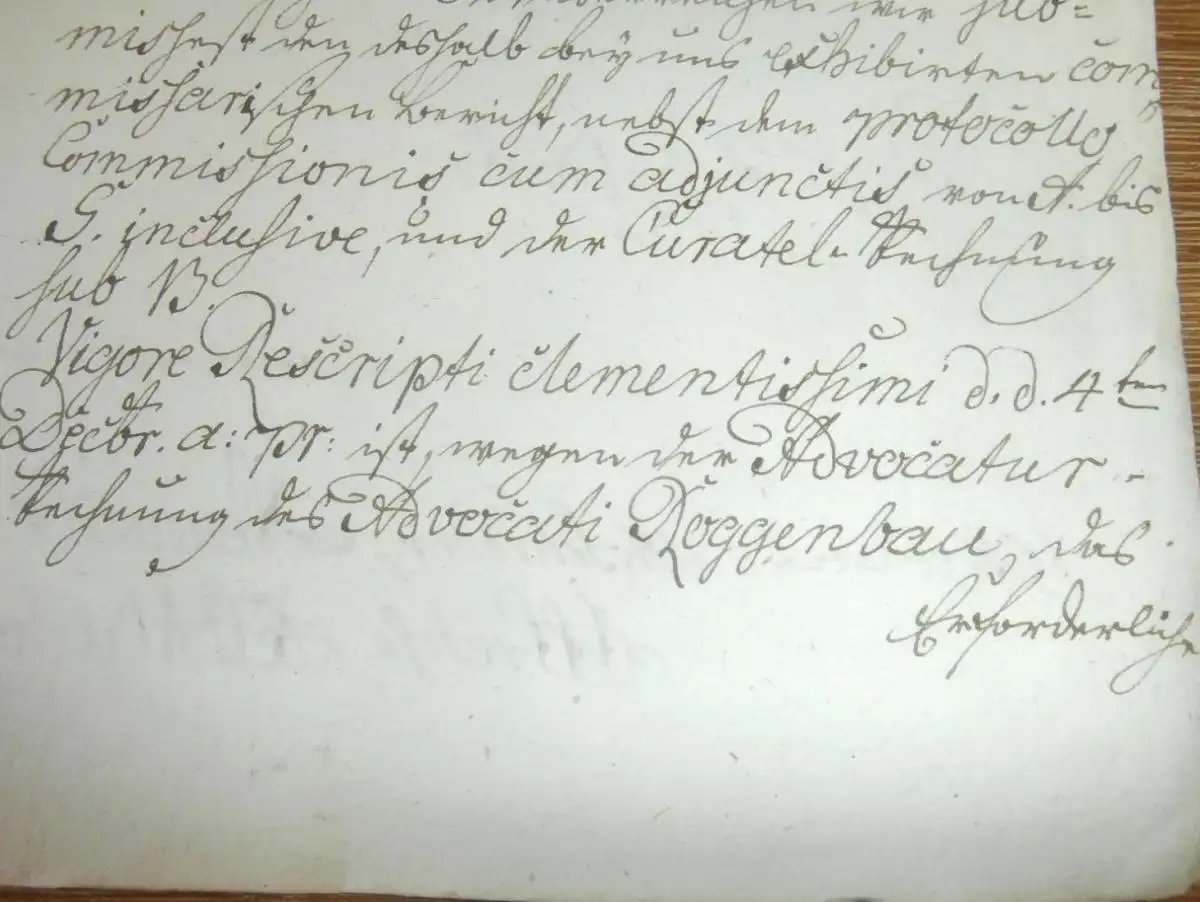 wir sub=
missest den deshalb bey uns exhibirten com
missarischen Bericht, nebst dem protocollo
Commissionis cum adjunctis von A. bis
G. inclusive, und der Curatel-Rechnung
sub B.
Vigore Rescripti clementissimi d. d. 4ten
Decbr. a: pr: ist, wegen der Advocatur-
Rechnung des Advocati Roggenbau, das
Erforderliche